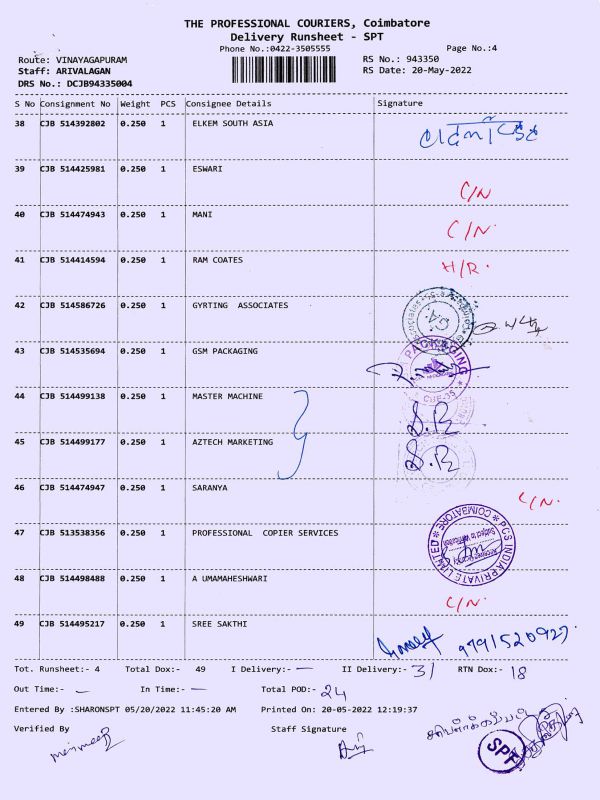 THE PROFESSIONAL COURIERS, Coimbatore
Delivery Runsheet - SPT
Phone No.:0422-3505555 Page No.:4
Route: VINAYAGAPURAM RS No.: 943350
Staff: ARIVALAGAN RS Date: 20-May-2022
DRS No.: DCJB94335004
S No Consignment No Weight PCS Consignee Details Signature
38 CJB 514392802 0.250 1 ELKEM SOUTH ASIA
39 CJB 514425981 0.250 1 ESWARI C/N
40 CJB 514474943 0.250 1 MANI C/N.
41 CJB 514414594 0.250 1 RAM COATES H/R.
42 CJB 514586726 0.250 1 GYRTING ASSOCIATES
43 CJB 514535694 0.250 1 GSM PACKAGING
PACKAGING
44 CJB 514499138 0.250 1 MASTER MACHINE
45 CJB 514499177 0.250 1 AZTECH MARKETING
46 CJB 514474947 0.250 1 SARANYA C/N.
47 CJB 513538356 0.250 1 PROFESSIONAL COPIER SERVICES
PCS INDIA PRIVATE LIMITED * COIMBATORE *
48 CJB 514498488 0.250 1 A UMAMAHESHWARI C/N.
49 CJB 514495217 0.250 1 SREE SAKTHI
Tot. Runsheet:- 4 Total Dox:- 49 I Delivery:- — II Delivery:- 31 RTN Dox:- 18
Out Time:- — In Time:- — Total POD:- 24
Entered By :SHARONSPT 05/20/2022 11:45:20 AM Printed On: 20-05-2022 12:19:37
Verified By Staff Signature
SPT